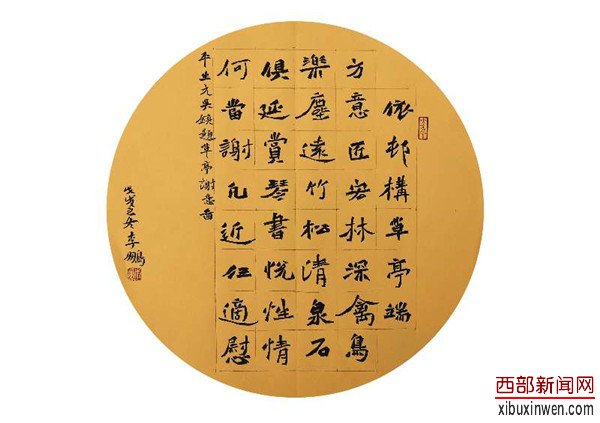 依邨構草亭端
方意匠宏林深禽鳥
樂塵遠竹松清泉石
俱延賞琴書悅性情
何當謝凡近任適慰
平生元吳鎮題草亭
戊戌之冬李鵬
西部新闻网
xibuxinwen.com